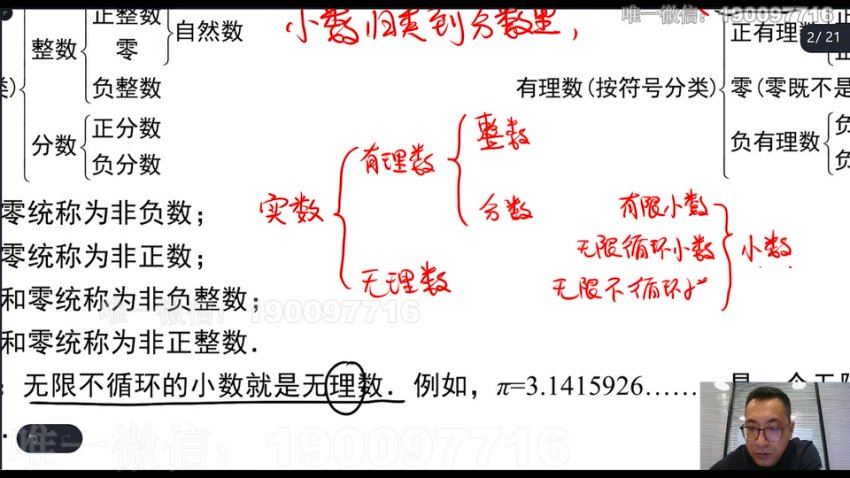 正整数
小数归类到分数里，
唯一微信：190097716
2/ 21
整数
零
自然数
正有理数
负整数
有理数(按符号分类)
零(零既不是
正分数
分数
负分数
负有理数
整数
有理数
实数
分数
无理数
有限小数
无限循环小数
小数
无限不循环小"
零统称为非负数；
零统称为非正数；
和零统称为非负整数；
唯一微信：190097716
和零统称为非正整数．
无限不循环的小数就是无理数．例如，π=3.1415926……
唯一微信：190097716